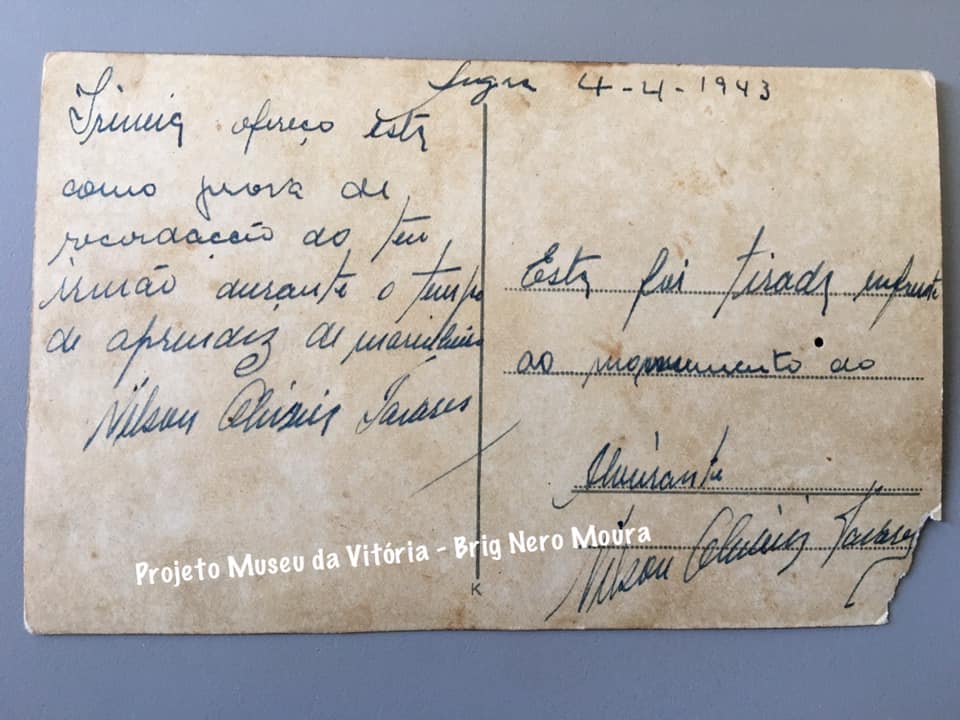 4-4-1943
Irineia ofereço esta
como prova de
recordacção do teu
irmão durante o tempo
de aprendiz de marinheiro
Nilson Oliveira Tavares
Esta foi tirada enfrente
ao monumento do
Almirante
Nilson Oliveira Tavares
Projeto Museu da Vitória - Brig Nero Moura
K